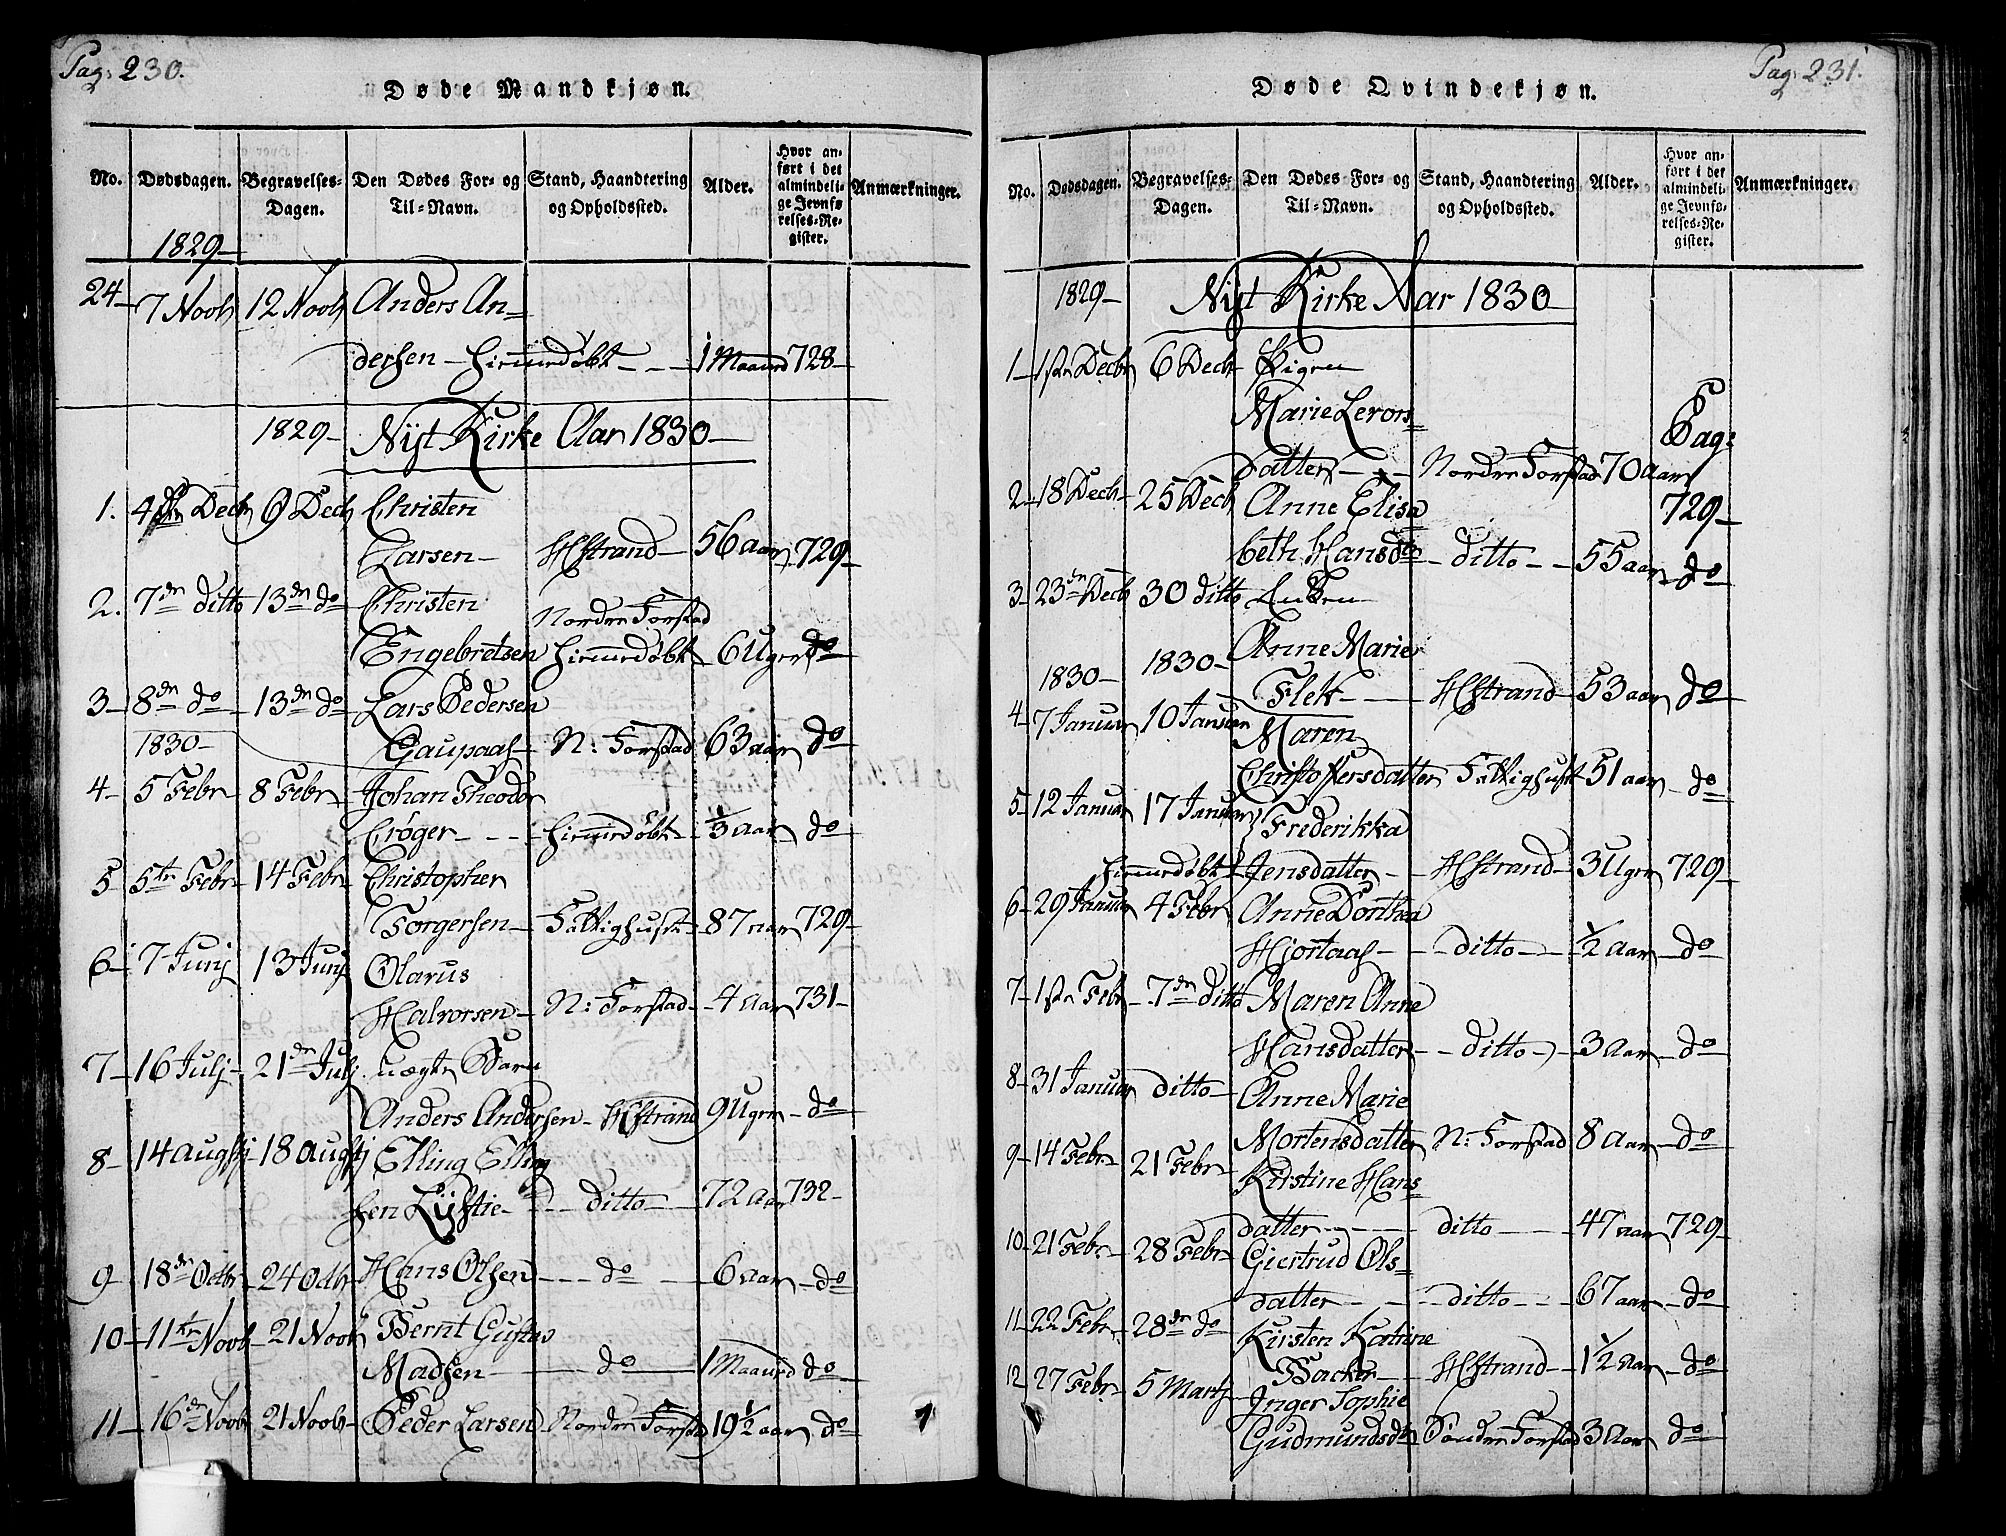 Pag: 230.
Døde Mandkjøn.
No. Dødsdagen. Begravelses-Dagen. Den Dødes For- og Til-Navn. Stand, Haandtering og Opholdssted. Alder. Hvor anført i det almindelige Jevnførelses-Register. Anmærkninger.
1829
24 7 Novb 12 Novb Anders An=
dersen hiemmedøbt 1 Maaned 728
1829 Nyt Kirke Aar 1830
1. 4de Decb 9 Decb Christen
Larsen Hstrand 56 aar 729
2. 7de ditto 13de do Christen Nordre Forstad
Engebretsen hiemmedøbt 6 Uger do
3 8de do 13de do Lars Pedersen
1830 Gaupaas N: Forstad 63 aar do
4 5 Febr 8 Febr Johan Theodor
Crøger hiemmedøbt 1/3 aar do
5 5te Febr 14 Febr Christopher
Torgersen Fattighuset 87 aar 729
6 7 Junj 13 Junj Olarus
Halvorsen N: Forstad 4 aar 731
7 16 Julj 21de Julj uægte Barn
Anders Andersen Hstrand 9 Uger do
8 14 Augstj 18 Augstj Elling Elling
sen Lystie ditto 72 aar 732
9 18de Octbr 24 Octb Hans Olsen do 6 aar do
10 11te Novb 21 Novb Bernt Gustav
Madsen do 1 Maaned do
11 16de Novb 21 Novb Peder Larsen Nordre Forstad 19 1/2 aar do
Pag: 231.
Døde Qvindekjøn.
No. Dødsdagen. Begravelses-Dagen. Den Dødes For- og Til-Navn. Stand, Haandtering og Opholdssted. Alder. Hvor anført i det almindelige Jevnførelses-Register. Anmærkninger.
1829 Nyt Kirke Aar 1830
1 1ste Decbr 6 Decb Pigen
Marie Lerons=
datter Nordre Forstad 70 aar Pag: 729
2 18 Decb 25 Decb Anne Elisa
beth Hansdtr ditto 55 aar do
3 23de Decb 30 ditto Enken
1830 1830 Anne Marie
Flek Hstrand 53 aar do
4 7 Januar 10 Januar Maren
Christoffersdatter Fattighuset 51 aar do
5 12 Januar 17 Januar Frederikka
hiemmedøbt Jensdatter Hstrand 3 Uger 729
6 29 Januar 4 Febr Anne Dorthea
Hjortaas ditto 1/2 aar do
7 1ste Febr 7de ditto Maren Anne
Hansdatter ditto 3 aar do
8 31 Januar ditto Anne Marie
Mortensdatter N: Forstad 8 aar do
9 14 Febr 21 Febr Kirstine Hans=
datter ditto 47 aar 729
10 21 Febr. 28 Febr Giertrud Ols=
datter ditto 67 aar do
11 22 Febr. 28de do Kirsten Katrine
Backer Hstrand 1 1/2 aar do
12 27 Febr 5 Martj Inger Sophie
Gudmundsdtr Søndre Forstad 3 aar do